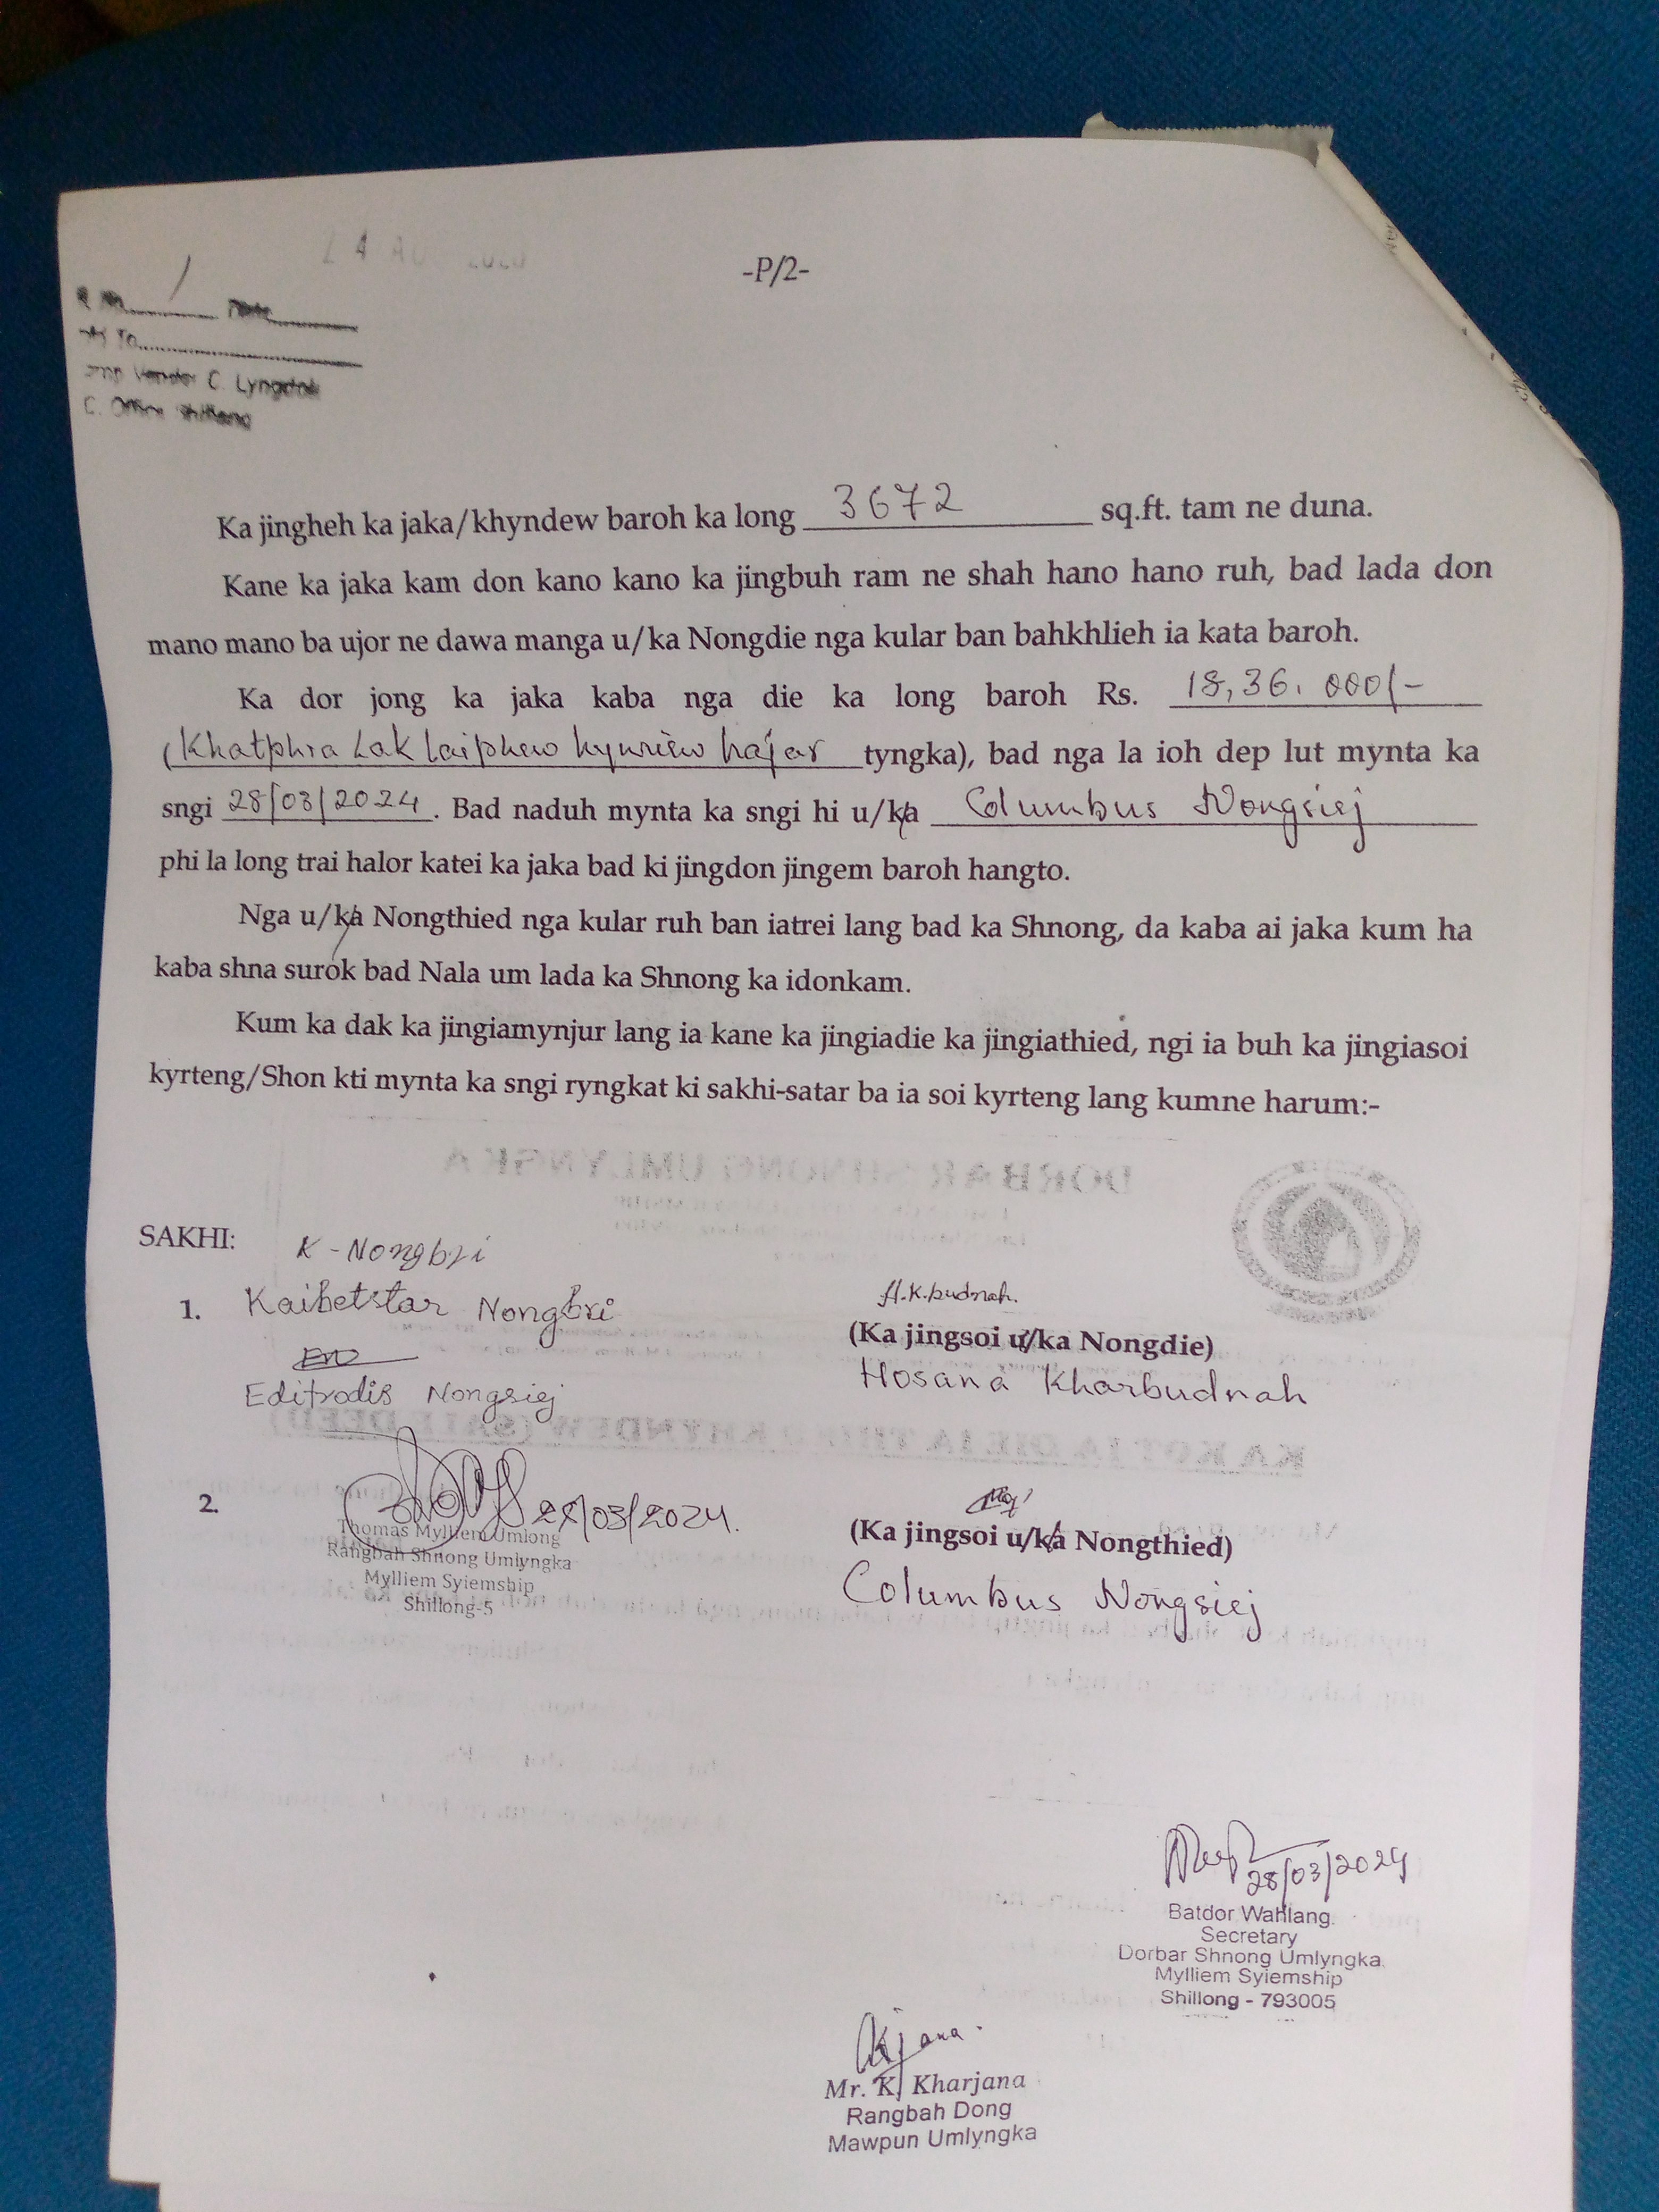 -P/2-
Vendor C. Lyngdoh
C. Office Shillong
Ka jingheh ka jaka/khyndew baroh ka long 3672 sq.ft. tam ne duna.
Kane ka jaka kam don kano kano ka jingbuh ram ne shah hano hano ruh, bad lada don
mano mano ba ujor ne dawa manga u/ka Nongdie nga kular ban bahkhlieh ia kata baroh.
Ka dor jong ka jaka kaba nga die ka long baroh Rs. 18,36,000/-
(Khatphra Lak laiphew hynriew hajar tyngka), bad nga la ioh dep lut mynta ka
sngi 28/03/2024. Bad naduh mynta ka sngi hi u/ka Columbus Nongsiej
phi la long trai halor katei ka jaka bad ki jingdon jingem baroh hangto.
Nga u/ka Nongthied nga kular ruh ban iatrei lang bad ka Shnong, da kaba ai jaka kum ha
kaba shna surok bad Nala um lada ka Shnong ka idonkam.
Kum ka dak ka jingiamynjur lang ia kane ka jingiadie ka jingiathied, ngi ia buh ka jingiasoi
kyrteng/Shon kti mynta ka sngi ryngkat ki sakhi-satar ba ia soi kyrteng lang kumne harum:-
SAKHI:
K-Nongbri
1. Kaibetstar Nongbri
Editrodis Nongsiej
H.K.budnah.
(Ka jingsoi u/ka Nongdie)
Hosana Kharbudnah
2. 28/03/2024.
Thomas Mylliem Umlong
Rangbah Shnong Umlyngka
Mylliem Syiemship
Shillong-5
(Ka jingsoi u/ka Nongthied)
Columbus Nongsiej
28/03/2024
Batdor Wahlang.
Secretary
Dorbar Shnong Umlyngka
Mylliem Syiemship
Shillong - 793005
Kjana.
Mr. K. Kharjana
Rangbah Dong
Mawpun Umlyngka